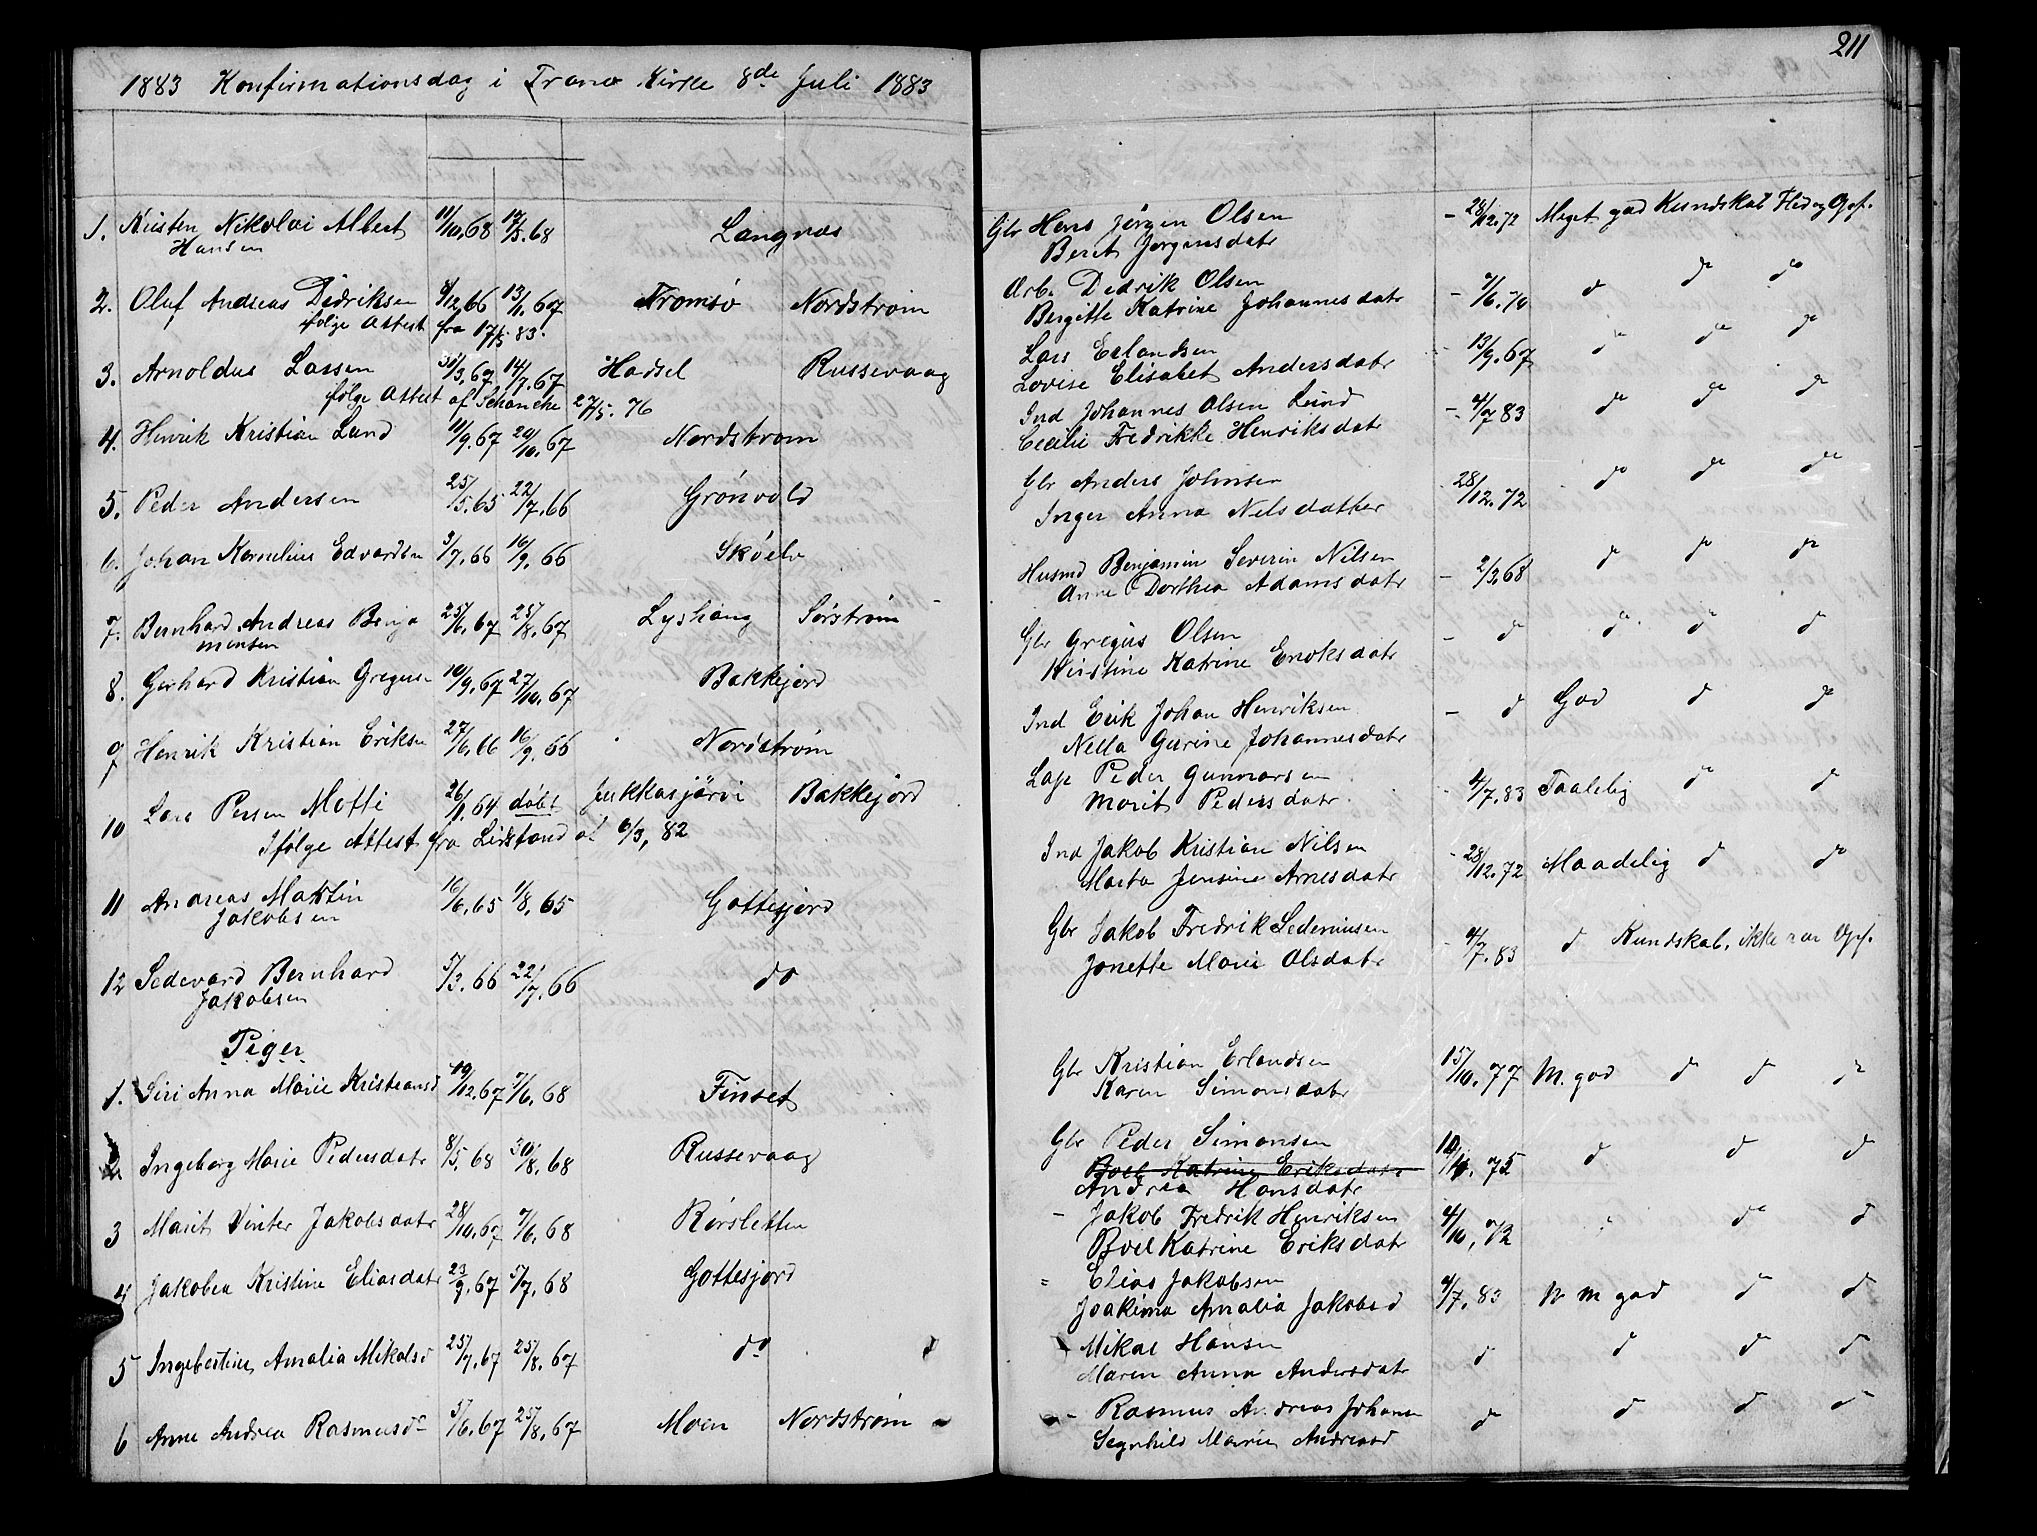 211
1883 Konfirmationsdag i Tranø Kirke 8de Juli 1883
1. Kristen Nikolai Albert 11/10.68 17/5.68 Langnæs
Hansen
2. Oluf Andreas Didriksen 8/12.66 13/1.67 Tromsø Nordstrøm
ifølge Attest fra 17/5 83.
3. Arnoldus Larsen 31/3.67 14/7.67 Hadsel Russevaag
ifølge Attest af Schancke 27/5. 76
4. Henrik Kristian Lund 11/9.67 20/10.67 Nordstrøm
5. Peder Andersen 25/5.65 22/7.66 Grönvold
6. Johan Kornelius Edvardsen 3/7.66 16/9.66 Skóelv
7. Bernhard Andreas Benja 25/6.67 25/8.67 Lyshaug Sørstrøm
minsen
8. Gerhard Kristian Gregus. 10/9.67 27/10.67 Bakkejord
9 Henrik Kristian Eriksen 27/6.66 16/9.66 Nordstrøm
10 Lars Persen Motti 26/1.64 döbt Jukkasjärvi Bakkejord
Ifølge Attest fra 6/3, 82
11 Andreas Martin 16/6.65 1/8.65 Gottesjord
Jakobsen
12 Sedevard Bernhard 5/3.66 22/7.66 do
Jakobsen
Piger
1. Siri Anna Marie Kristiansd. 19/12.67 7/6.68 Finset
2. Ingeborg Marie Pedersdatr 8/5.68 30/8.68 Russevaag
3 Marit Vinter Jakobsdatr 28/10.67 7/6.68 Rørsletten
4 Jakobea Kristine Eliasdatr 23/9.67 5/7.68 Gottesjord
5 Ingebertine Amalia Mikalsd 25/7.67 25/8.67 do
6 Anne Andrea Rasmusdr 5/6.67 25/8.67 Moen Nordstrøm
Gbr Hans Jörgen Olsen - 28/12.72 Meget god Kundskab Flid og Opf.
Berit Jørgensdatr
Arb. Didrik Olsen - 7/6.70 do do do
Birgitte Katrine Johannesdatr
Lars Erlandsen - 13/9.67 do do do
Lovise Elisabet Andersdatr
Ind Johannes Olsen Lund - 4/7 83 do do do
Cecilie Fredrikke Henriksdatr
Gbr Anders Johnsen - 28/12.72 do do do
Inger Anna Nelsdatter
Husmd Benjamin Severin Nilsen - 2/3 68 do do do
Anne Dorthea Adamsdatr
Gbr Gregus Olsen - d do do d
Kirstine Katrine Enoksdatr
Ind Erik Johan Henriksen - d God d do
Nella Gurine Johannesdatr
Lap Peder Gunnarsen - 4/7.83 Taalelig do d
Marit Pedersdatr
Ind Jakob Kristian Nilsen - 28/12.72 Maadelig d do
Marta Jensine Arnesdatr
Gbr Jakob Fredrik Sedeniusen - 4/7.83 d Kundskab, ikke Opf.
Jonette Marie Olsdatr
Gbr Kristian Erlandsen 15/10.77 M. god d d d
Karen Simonsdatr
Gbr Peder Simonsen 75 d d d
Boel Katrine Eriksdatr
Andrea Hansdatr
- Jakob Fredrik Henriksen 4/10, 72 do d
Boel Katrine Eriksdatr
= Elias Jakobsen 4/7.83 N M god do d
Joakima Amalia Jakobsd
Mikal Hansen d d d d
Maren Anna Andersdatr
- Rasmus Andreas Johans do d d d
Marie Andreasd